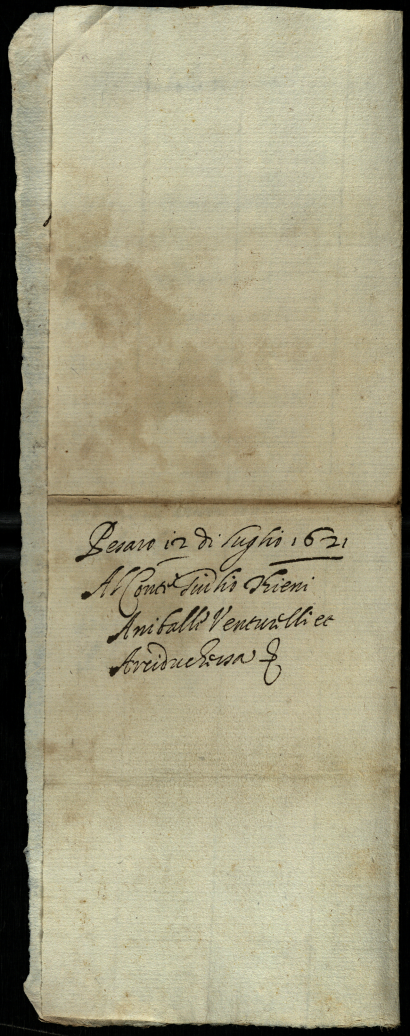 Pesaro 12 di luglio 1621
Al Conte Giulio Thieni
Aniballe Venturelli et
Arciduchessa